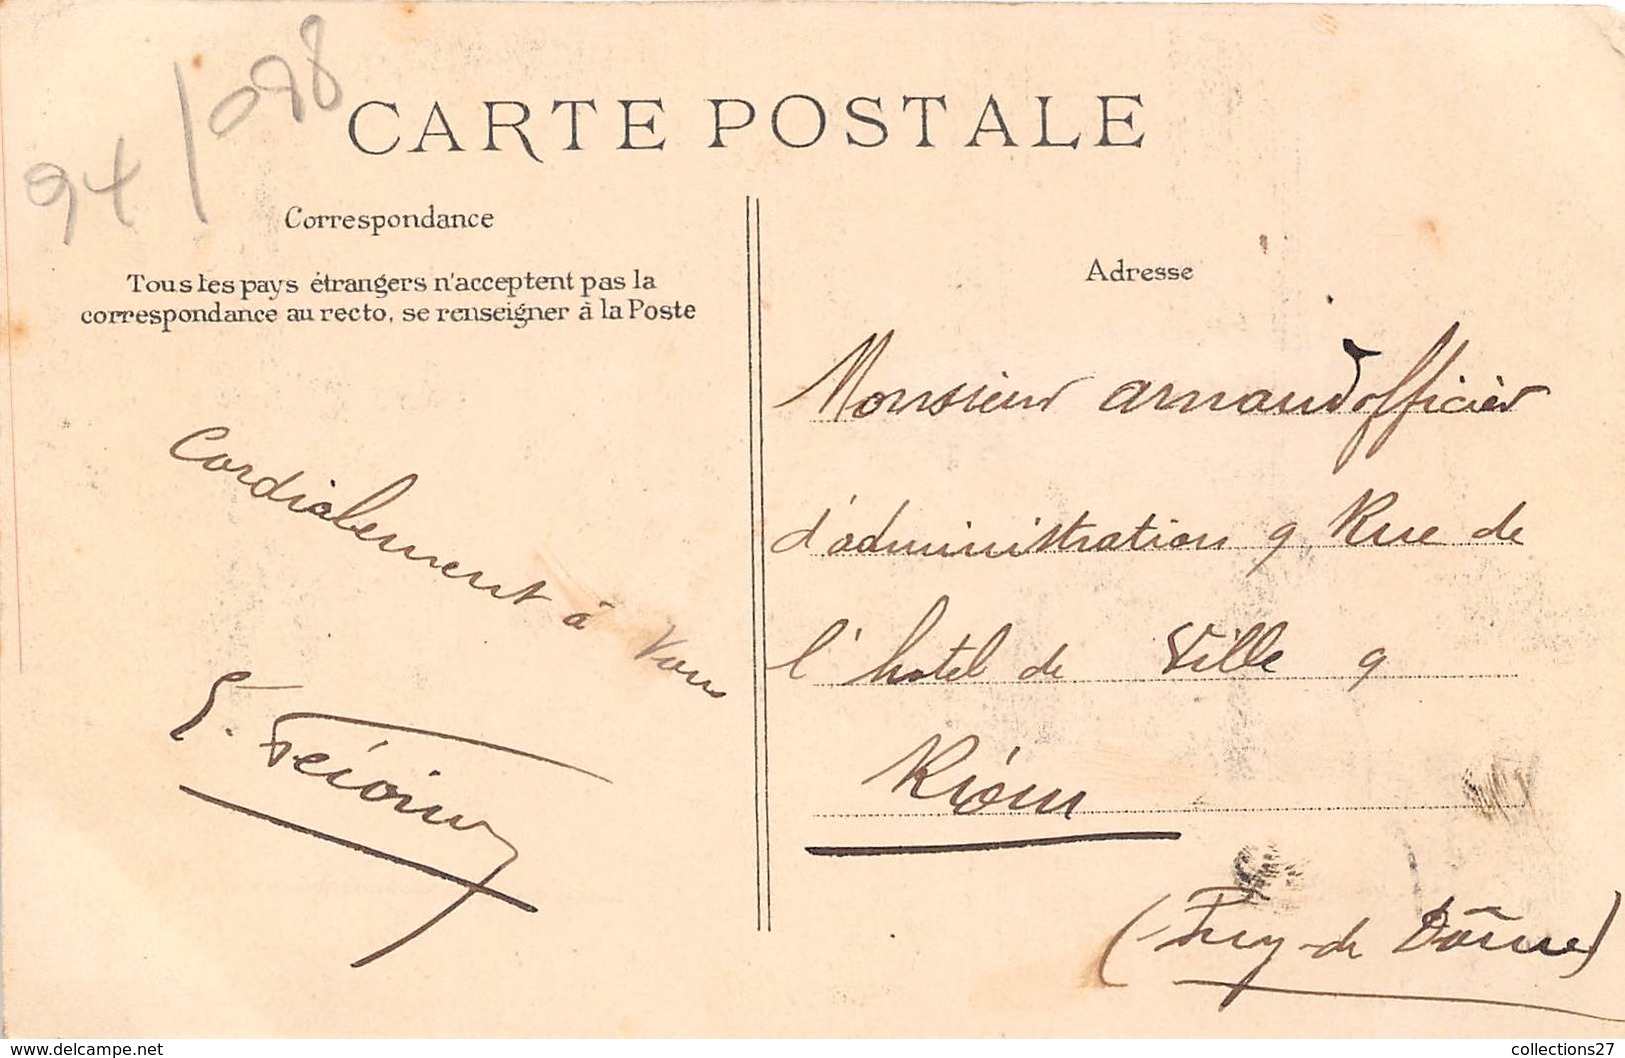 94/098
CARTE POSTALE
Correspondance
Tous les pays étrangers n'acceptent pas la
correspondance au recto, se renseigner à la Poste
Cordialement à Vous
E.
Adresse
Monsieur Arnaud officier
d'administration 9, Rue de
l'hotel de Ville 9
Riom
(Puy-de Dôme)
www.delcampe.net
collections27